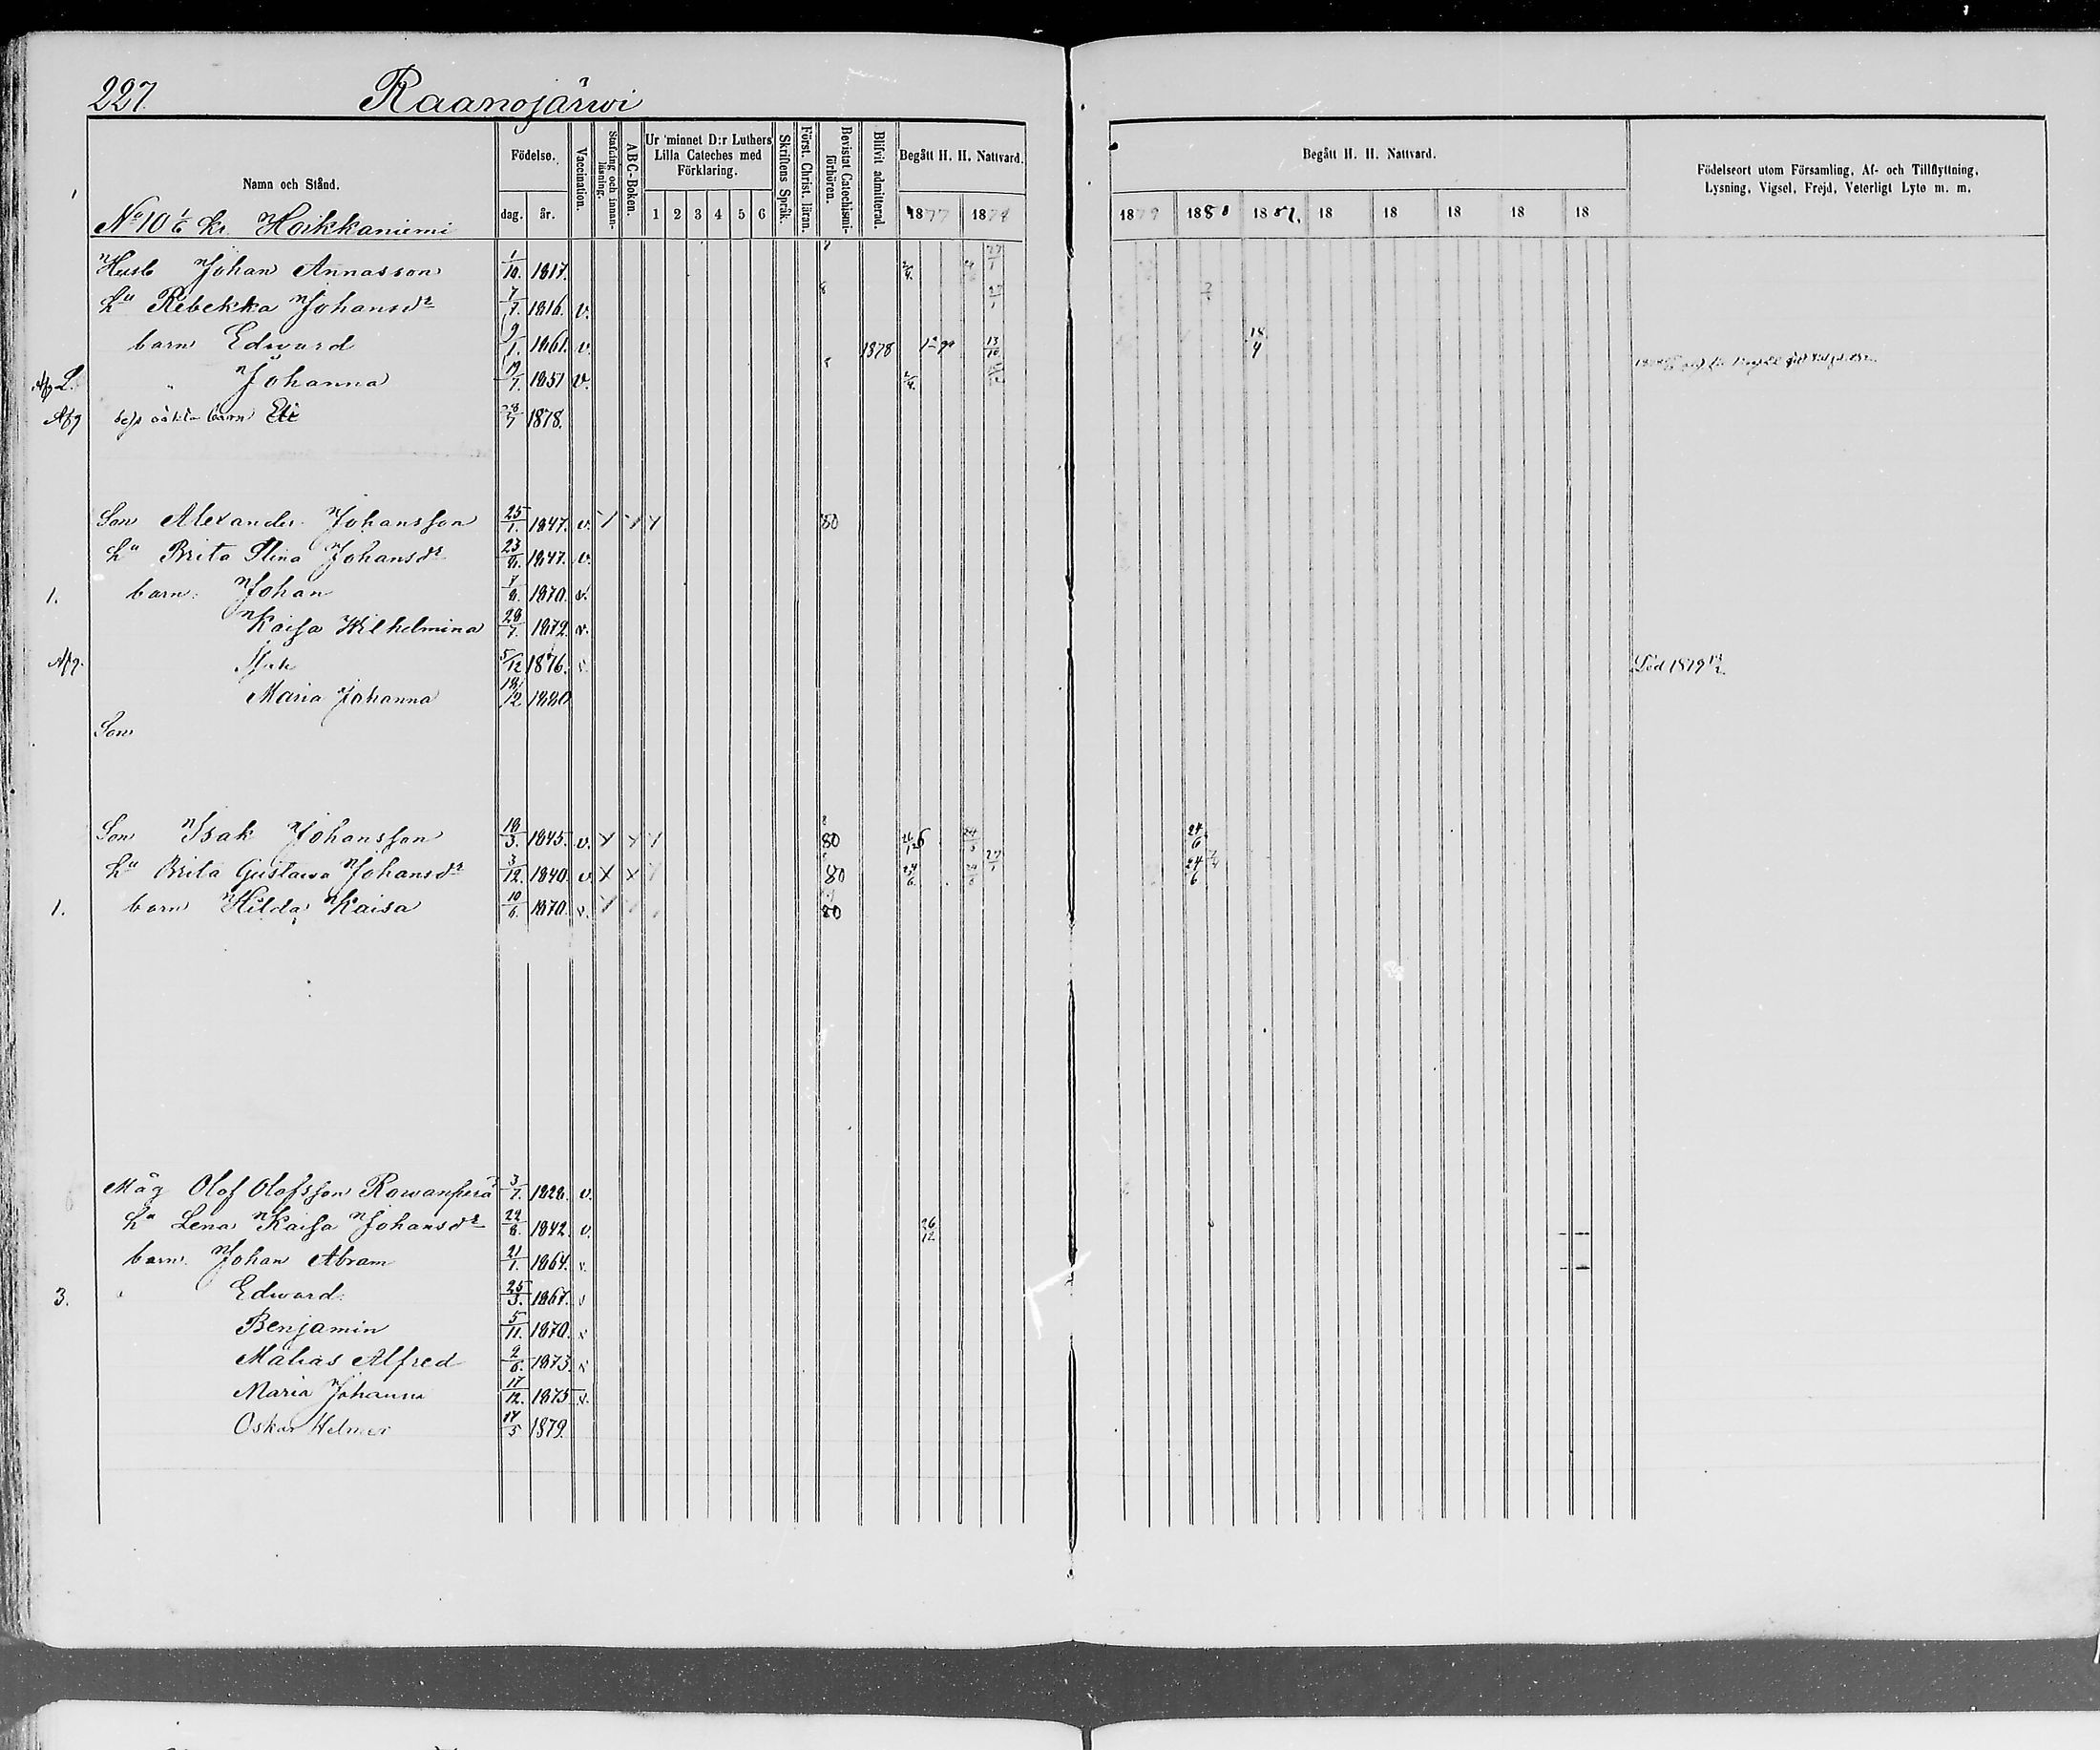 227. Raanojärwi
Namn och Stånd.
Födelse.
dag. år.
Vaccination.
Stafning och innanläsning.
ABC-Boken.
Ur minnet D:r Luthers Lilla Cateches med Förklaring.
1 2 3 4 5 6
Skriftens Språk.
Först. Christ. läran.
Bevistat Catechismiförhören.
Blifvit admitterad.
Begått H. H. Nattvard.
1877 1878
Begått H. H. Nattvard.
1879 1880 1881. 18 18 18 18 18
Födelseort utom Församling, Af- och Tillflyttning, Lysning, Vigsel, Frejd, Veterligt Lyte m. m.
No 10 1/6 kr. Hoikkaniemi
Husb Johan Annasson 1/10. 1817.
Hu Rebekka Johansdr 7/7. 1816. v.
barn Edward 9/1. 1861. v. 1878 13/10 18/4
Johanna 19/7. 1851 v.
Afg barn 28/7 1878.
Son Alexander Johansson 25/1. 1847. v. 80
Hu Brita Stina Johansdr 23/6. 1847. v.
1. barn: Johan 7/6. 1870. v.
Kaisa Wilhelmina 28/7. 1872. v.
Afg. 5/12 1876. Död 1879
Maria Johanna 18/12 1880
Son
Son Isak Johansson 18/3. 1845. v. 80 24/6
Hu Brita Gustawa Johansdr 3/12. 1840. v. 80 24/6 24/6
1. barn Hilda Kaisa 10/6. 1870. v. 80
Måg Olof Olofsson Rowanperä 3/7. 1828. v.
Hu Lena Kaisa Johansdr 22/8. 1842. v. 26/12
barn. Johan Abram 21/1. 1864. v.
3. Edward. 25/3. 1867. v
Benjamin 5/11. 1870. v
Matias Alfred 2/6. 1873. v
Maria Johanna 17/12. 1875 v.
Oskar Helmer 14/5 1879.